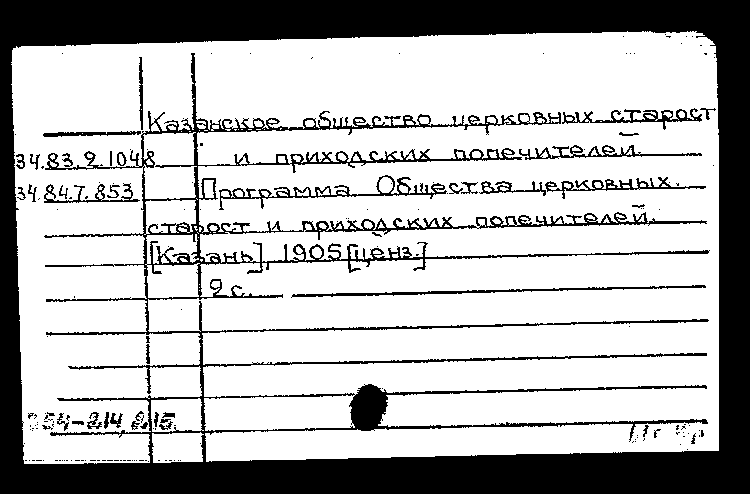 Казанское общество церковных старост
34.83.2.1048 и приходских попечителей.
34.84.7.853 Программа Общества церковных
старост и приходских попечителей.
[Казань], 1905 [ценз.]
2 с.
254-214, 215.